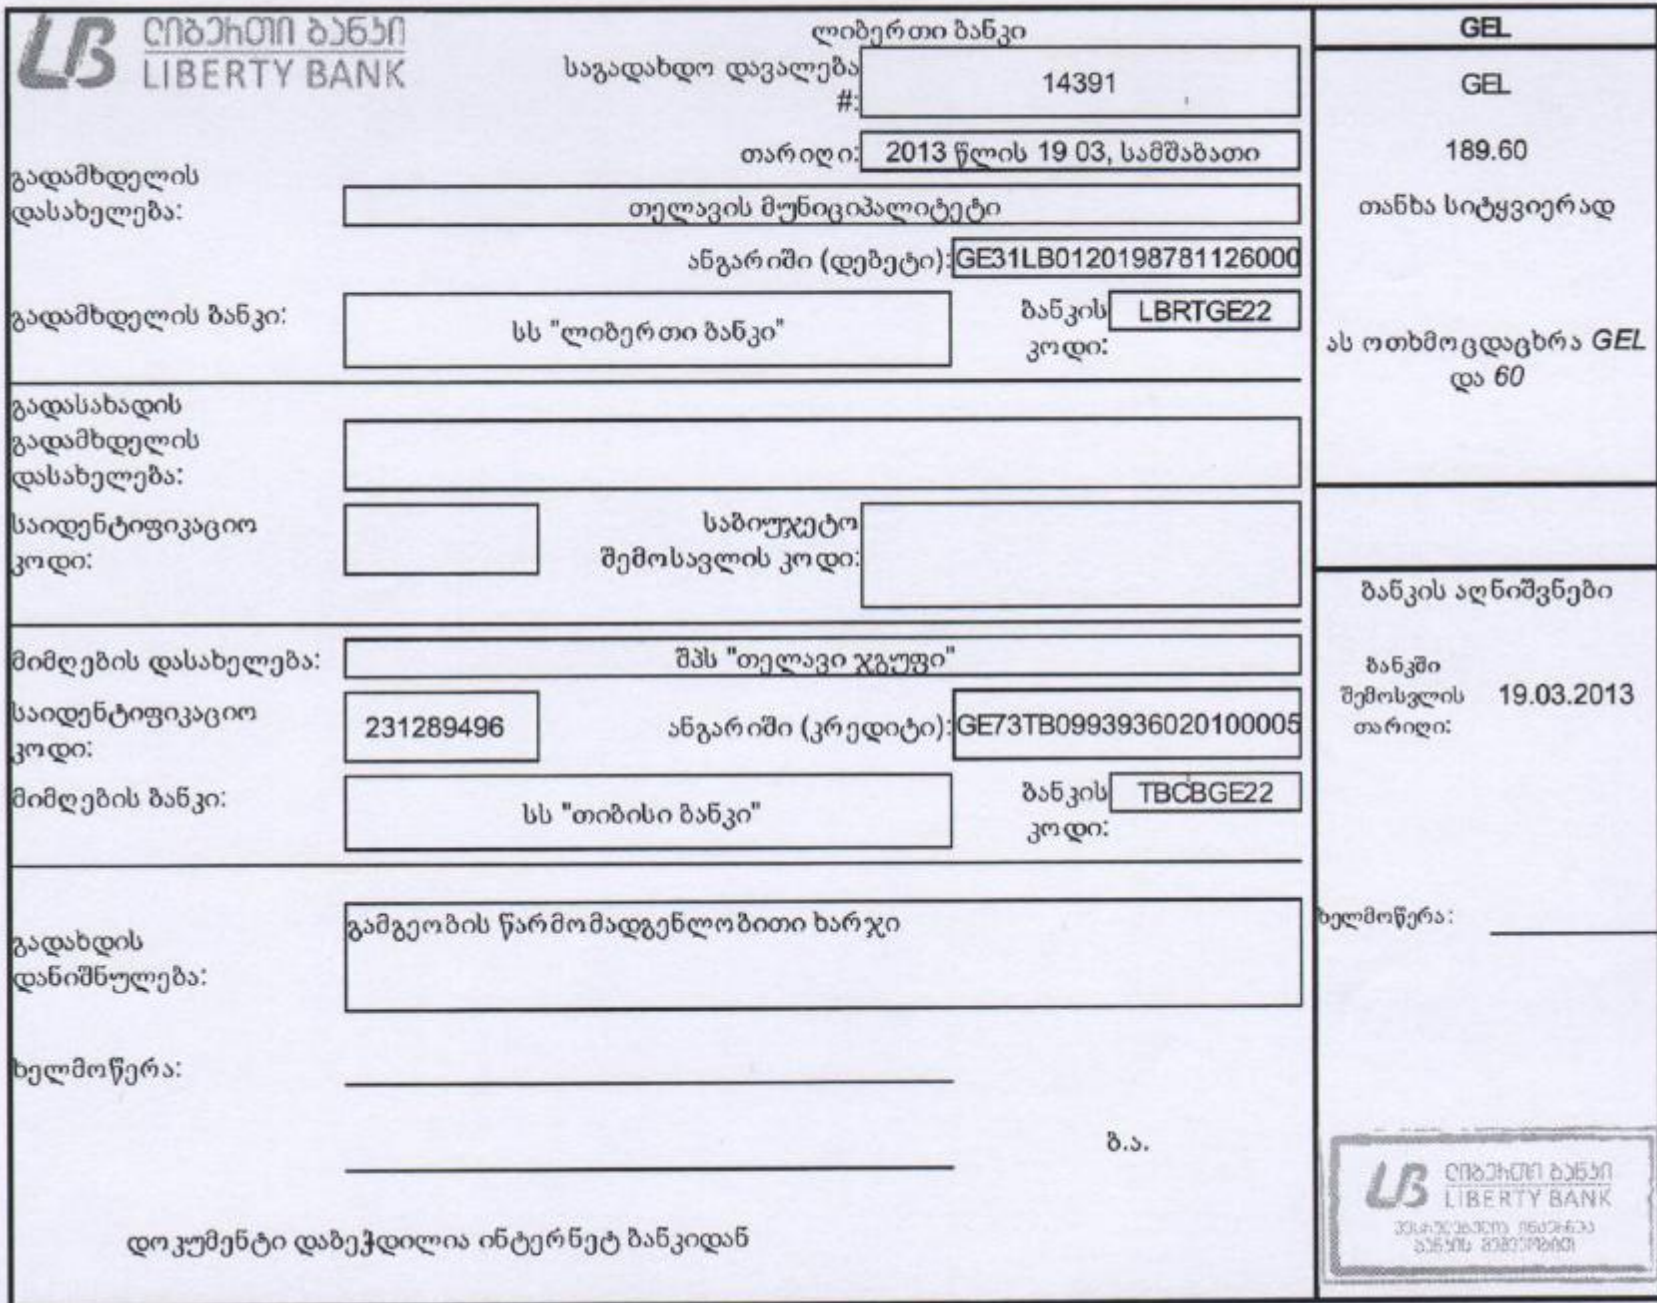 ლიბერთი ბანკი
LIBERTY BANK
ლიბერთი ბანკი
საგადახდო დავალება
#:
14391
თარიღი:
2013 წლის 19 03, სამშაბათი
გადამხდელის
დასახელება:
თელავის მუნიციპალიტეტი
ანგარიში (დებეტი):
GE31LB0120198781126000
გადამხდელის ბანკი:
სს "ლიბერთი ბანკი"
ბანკის
კოდი:
LBRTGE22
გადასახადის
გადამხდელის
დასახელება:
საიდენტიფიკაციო
კოდი:
საბიუჯეტო
შემოსავლის კოდი:
მიმღების დასახელება:
შპს "თელავი ჯგუფი"
საიდენტიფიკაციო
კოდი:
231289496
ანგარიში (კრედიტი):
GE73TB0993936020100005
მიმღების ბანკი:
სს "თიბისი ბანკი"
ბანკის
კოდი:
TBCBGE22
გადახდის
დანიშნულება:
გამგეობის წარმომადგენლობითი ხარჯი
ხელმოწერა:
ბ.ა.
დოკუმენტი დაბეჭდილია ინტერნეტ ბანკიდან
GEL
GEL
189.60
თანხა სიტყვიერად
ას ოთხმოცდაცხრა GEL
და 60
ბანკის აღნიშვნები
ბანკში
შემოსვლის
თარიღი:
19.03.2013
ხელმოწერა:
ლიბერთი ბანკი
LIBERTY BANK
ბანკის მეშვეობით